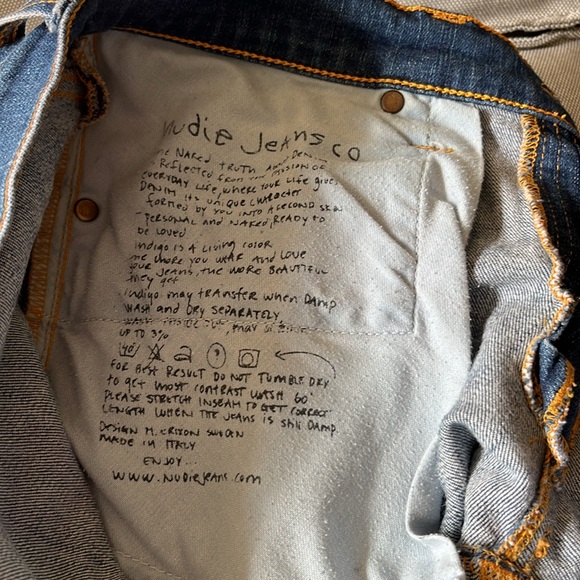 Nudie Jeans co
The Naked Truth About Denim
Reflected from the passion of
everyday life, where your life gives
Denim its unique character
formed by you into a second skin
- personal and naked, ready to
be loved
Indigo is a living color
The more you wear and love
your jeans, the more beautiful
they get
Indigo may transfer when damp
wash and dry separately
wash inside out, may
up to 3%
40
For best result do not tumble dry
to get most contrast wash 60°
Please stretch inseam to get correct
length when the jeans is still damp
Design M. Erixon Sweden
Made in Italy
Enjoy...
www.nudiejeans.com